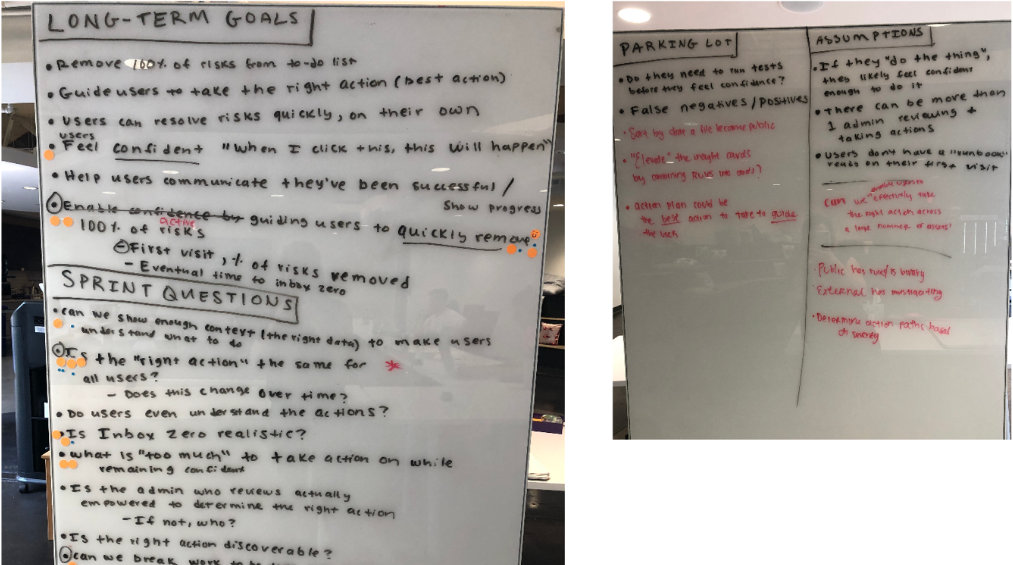 LONG-TERM GOALS
• Remove 100% of risks from to-do list
• Guide users to take the right action (best action)
• Users can resolve risks quickly, on their own
users
• Feel confident "when I click this, this will happen"
• Help users communicate they've been successful /
Show progress
• Enable confidence by guiding users to quickly remove
active
100% of risks
First visit, % of risks removed
- Eventual time to inbox zero
SPRINT QUESTIONS
• can we show enough context (the right data) to make users
understand what to do
• Is the "right action" the same for *
all users?
- Does this change over time?
• Do users even understand the actions?
• Is Inbox Zero realistic?
• what is "too much" to take action on while
remaining confident
• Is the admin who reviews actually
empowered to determine the right action
- If not, who?
• Is the right action discoverable?
can we break work to be
PARKING LOT
• Do they need to run tests
before they feel confidence?
• False negatives / positives
• Sort by date a file became public
• "Elevate" the insight cards
by combining into cards?
• action plan could be
the best action to take to guide
the user
ASSUMPTIONS
• If they "do the thing",
they likely feel confident
enough to do it
• There can be more than
1 admin reviewing +
taking actions
• Users don't have a "runbook"
ready on their first visit
enable users to
Can we effectively take
the right action across
a large number of assets?
• Public has binary
• External has investigating
• Determine action paths based
on